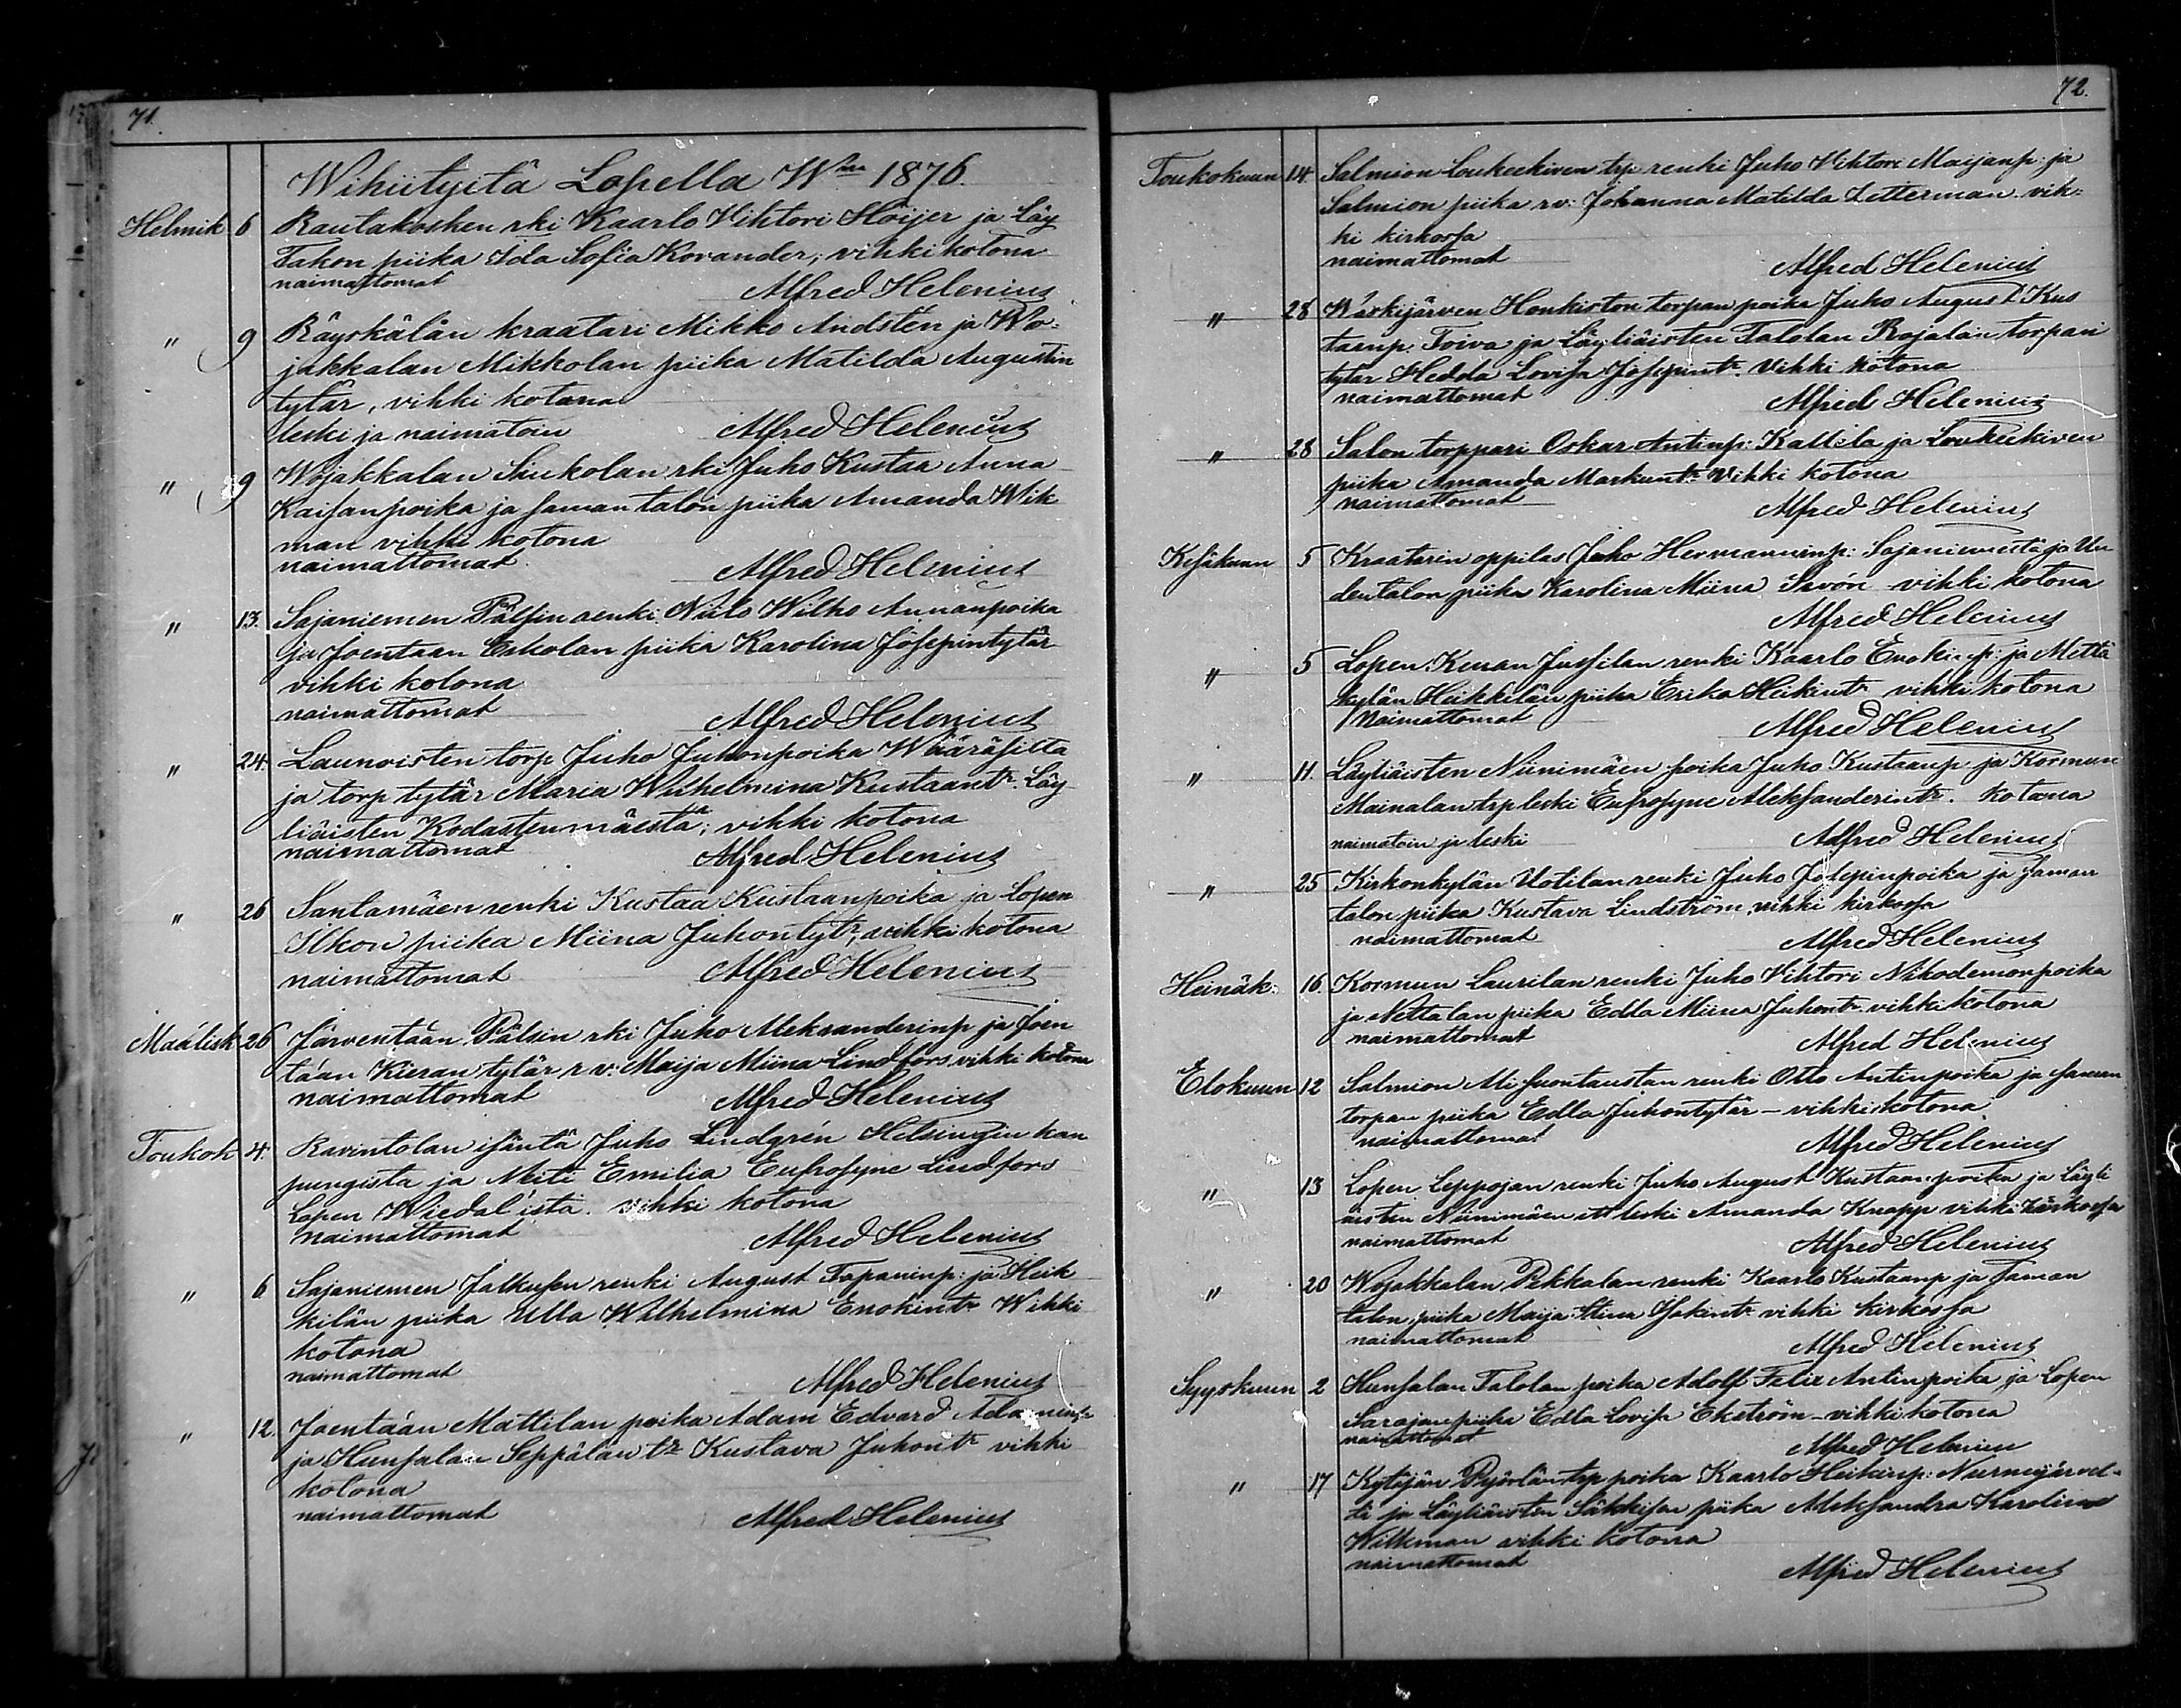 71.
Wihiityitä Lopella Wna 1876.
Helmik 6 Rautakosken rki Kaarlo Vihtori Höijer ja Läy
Takon piika Ida Sofia Korander, vihki kotona
naimattomat Alfred Helenius
" 9 Räyskälän kraatari Mikko Andstén ja Wo-
jakkalan Mikkolan piika Matilda Augustin
tytär, vihki kotona
leski ja naimatoin Alfred Helenius
" 9 Wojakkalan Siukolan rki Juho Kustaa Anna
Kaisanpoika ja saman talon piika Amanda Wik
man vihki kotona
naimattomat. Alfred Helenius
" 13. Sajaniemen Pälsin renki Niilo Wilho Annanpoika
ja Joentaan Eskolan piika Karolina Josepintytär
vihki kotona
naimattomat Alfred Helenius
" 24. Launoisten torp Juho Juhonpoika Wääräsilta
ja torp tytär Maria Wilhelmina Kustaantr. Läy
liäisten Kodastenmäestä; vihki kotona
naimattomat Alfred Helenius
" 26 Santamäen renki Kustaa Kustaanpoika ja Lopen
Ilkon piika Miina Juhontytr, vihki kotona
naimattomat Alfred Helenius
Maalisk 26 Järventaan Pälsin rki Juho Aleksanderinp ja Joen
taan Kieran tytär r v. Maija Miina Lindfors vihki kotona
naimattomat Alfred Helenius
Toukok 4. Ravintolan isäntä Juho Lindgrén Helsingin kau
pungista ja Neiti Emilia Eufrosyne Lindfors
Lopen Wiedal'ista. vihki kotona
naimattomat Alfred Helenius
" 6 Sajaniemen Jalkusen renki August Tapaninp: ja Heik
kilän piika Ulla Wilhelmina Enokintr Wihki
kotona
naimattomat Alfred Helenius
" 12. Joentaan Mattilan poika Adam Edvard Adaminp
ja Hunsalan Seppälän tr Kustava Juhontr vihki
kotona
naimattomat Alfred Helenius
72.
Toukokuun 14. Salmion Loukeekiven trp renki Juho Vihtori Maijanp: ja
Salmion piika rv: Johanna Matilda Zetterman vih-
ki kirkossa
naimattomat Alfred Helenius
" 28 Wärkijärven Honkiston torpan poika Juho August Kus
taanp. Toiva ja Läyliäisten Talolan Rajalan torpan
tytär Hedda Lovisa Josepintr. Vihki kotona
naimattomat Alfred Helenius
" 28 Salon torppari Oskar Antinp: Kattila ja Loukeekiven
piika Amanda Markuntr Vihki kotona
naimattomat Alfred Helenius
Kesäkuun 5 Kraatarin oppilas Juho Hermanninp: Sajaniemestä ja Uu
dentalon piika Karolina Miina Savón vihki kotona
Alfred Helenius
" 5 Lopen Jussilan renki Kaarlo Enokinp: ja Mettä
kylän Heikkilän piika Erika Heikintr vihki kotona
Naimattomat Alfred Helenius
" 11. Läyliäisten Niinimäen poika Juho Kustaanp ja Kormun
Mainalan trp leski Eufrosyne Aleksanderintr. kotona
naimatoin ja leski Alfred Helenius
" 25 Kirkonkylän Uotilan renki Juho Josepinpoika ja saman
talon piika Kustava Lindström, vihki kirkossa
naimattomat Alfred Helenius
Heinäk: 16. Kormun Laurilan renki Juho Vihtori Nikodemonpoika
ja Nettalan piika Edla Miina Juhontr vihki kotona
naimattomat Alfred Helenius
Elokuun 12 Salmion Ali Suontaustan renki Otto Antinpoika ja saman
torpan piika Edla Juhontytär – vihki kotona
naimattomat Alfred Helenius
" 13 Lopen Leppojan renki Juho August Kustaanpoika ja Läyli
äisten Niinimäen its leski Amanda Knapp vihki kirkossa
naimattomat Alfred Helenius
" 20 Wojakkalan Pekkalan renki Kaarlo Kustaanp ja saman
talon piika Maija Stina Isakintr vihki kirkossa
naimattomat Alfred Helenius
Syyskuun 2 Hunsalan Talolan poika Adolf Felix Antinpoika ja Lopen
Sarajan piika Edla Lovisa Ekström – vihki kotona
naimattomat Alfred Helenius
" 17 Kytäjän trp poika Kaarlo Heikinp: Nurmijärvel-
tä ja Läyliäisten Säkkisen piika Aleksandra Karolina
Wilkman vihki kotona
naimattomat Alfred Helenius